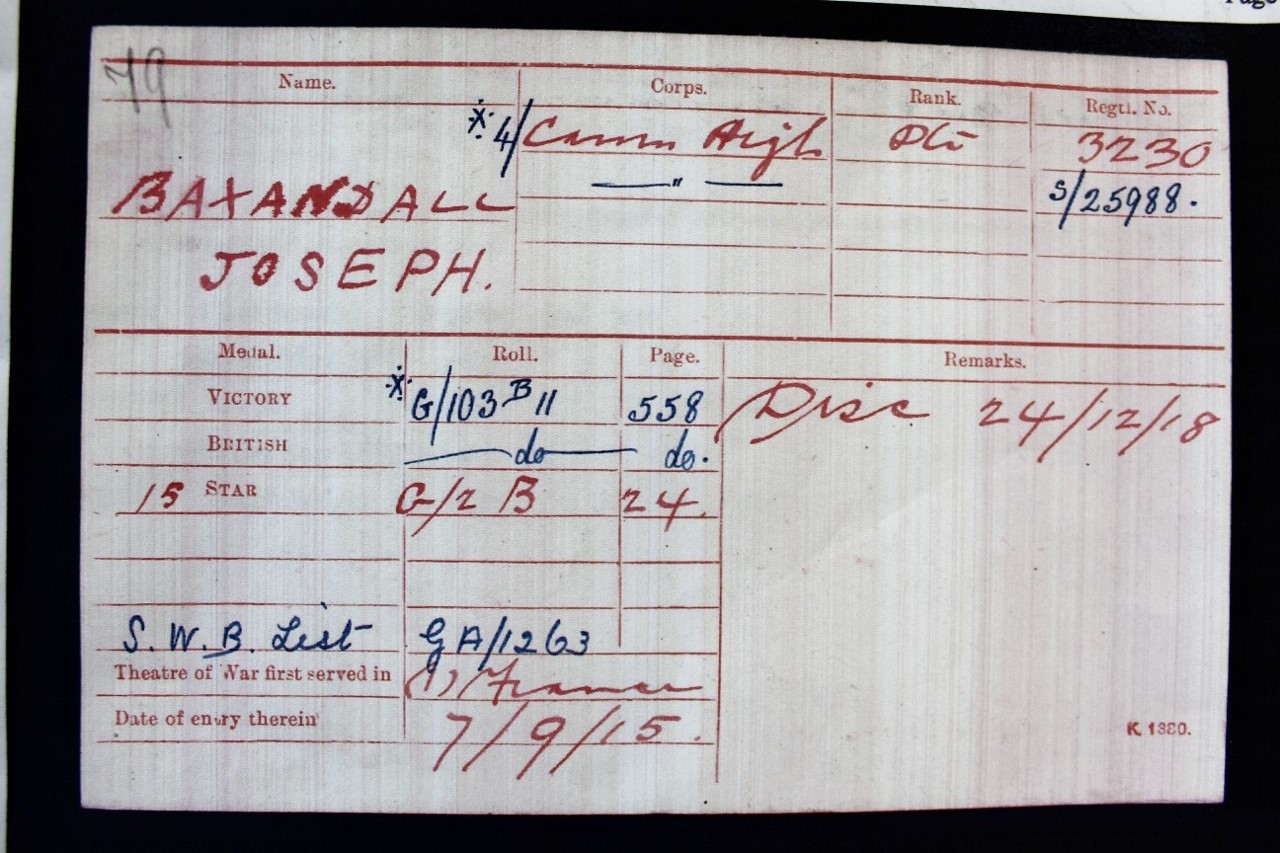 Page
79
Name. Corps. Rank. Regtl. No.
* 4/ Camn High Pte 3230
" S/25988.
BAXANDALL
JOSEPH.
Medal. Roll. Page. Remarks.
VICTORY * G/103 B 11 558 Disc 24/12/18
BRITISH do do.
15 STAR G/2 B 24.
S.W.B. List GA/1263
Theatre of War first served in (1) France
Date of entry therein 7/9/15.
K. 1380.